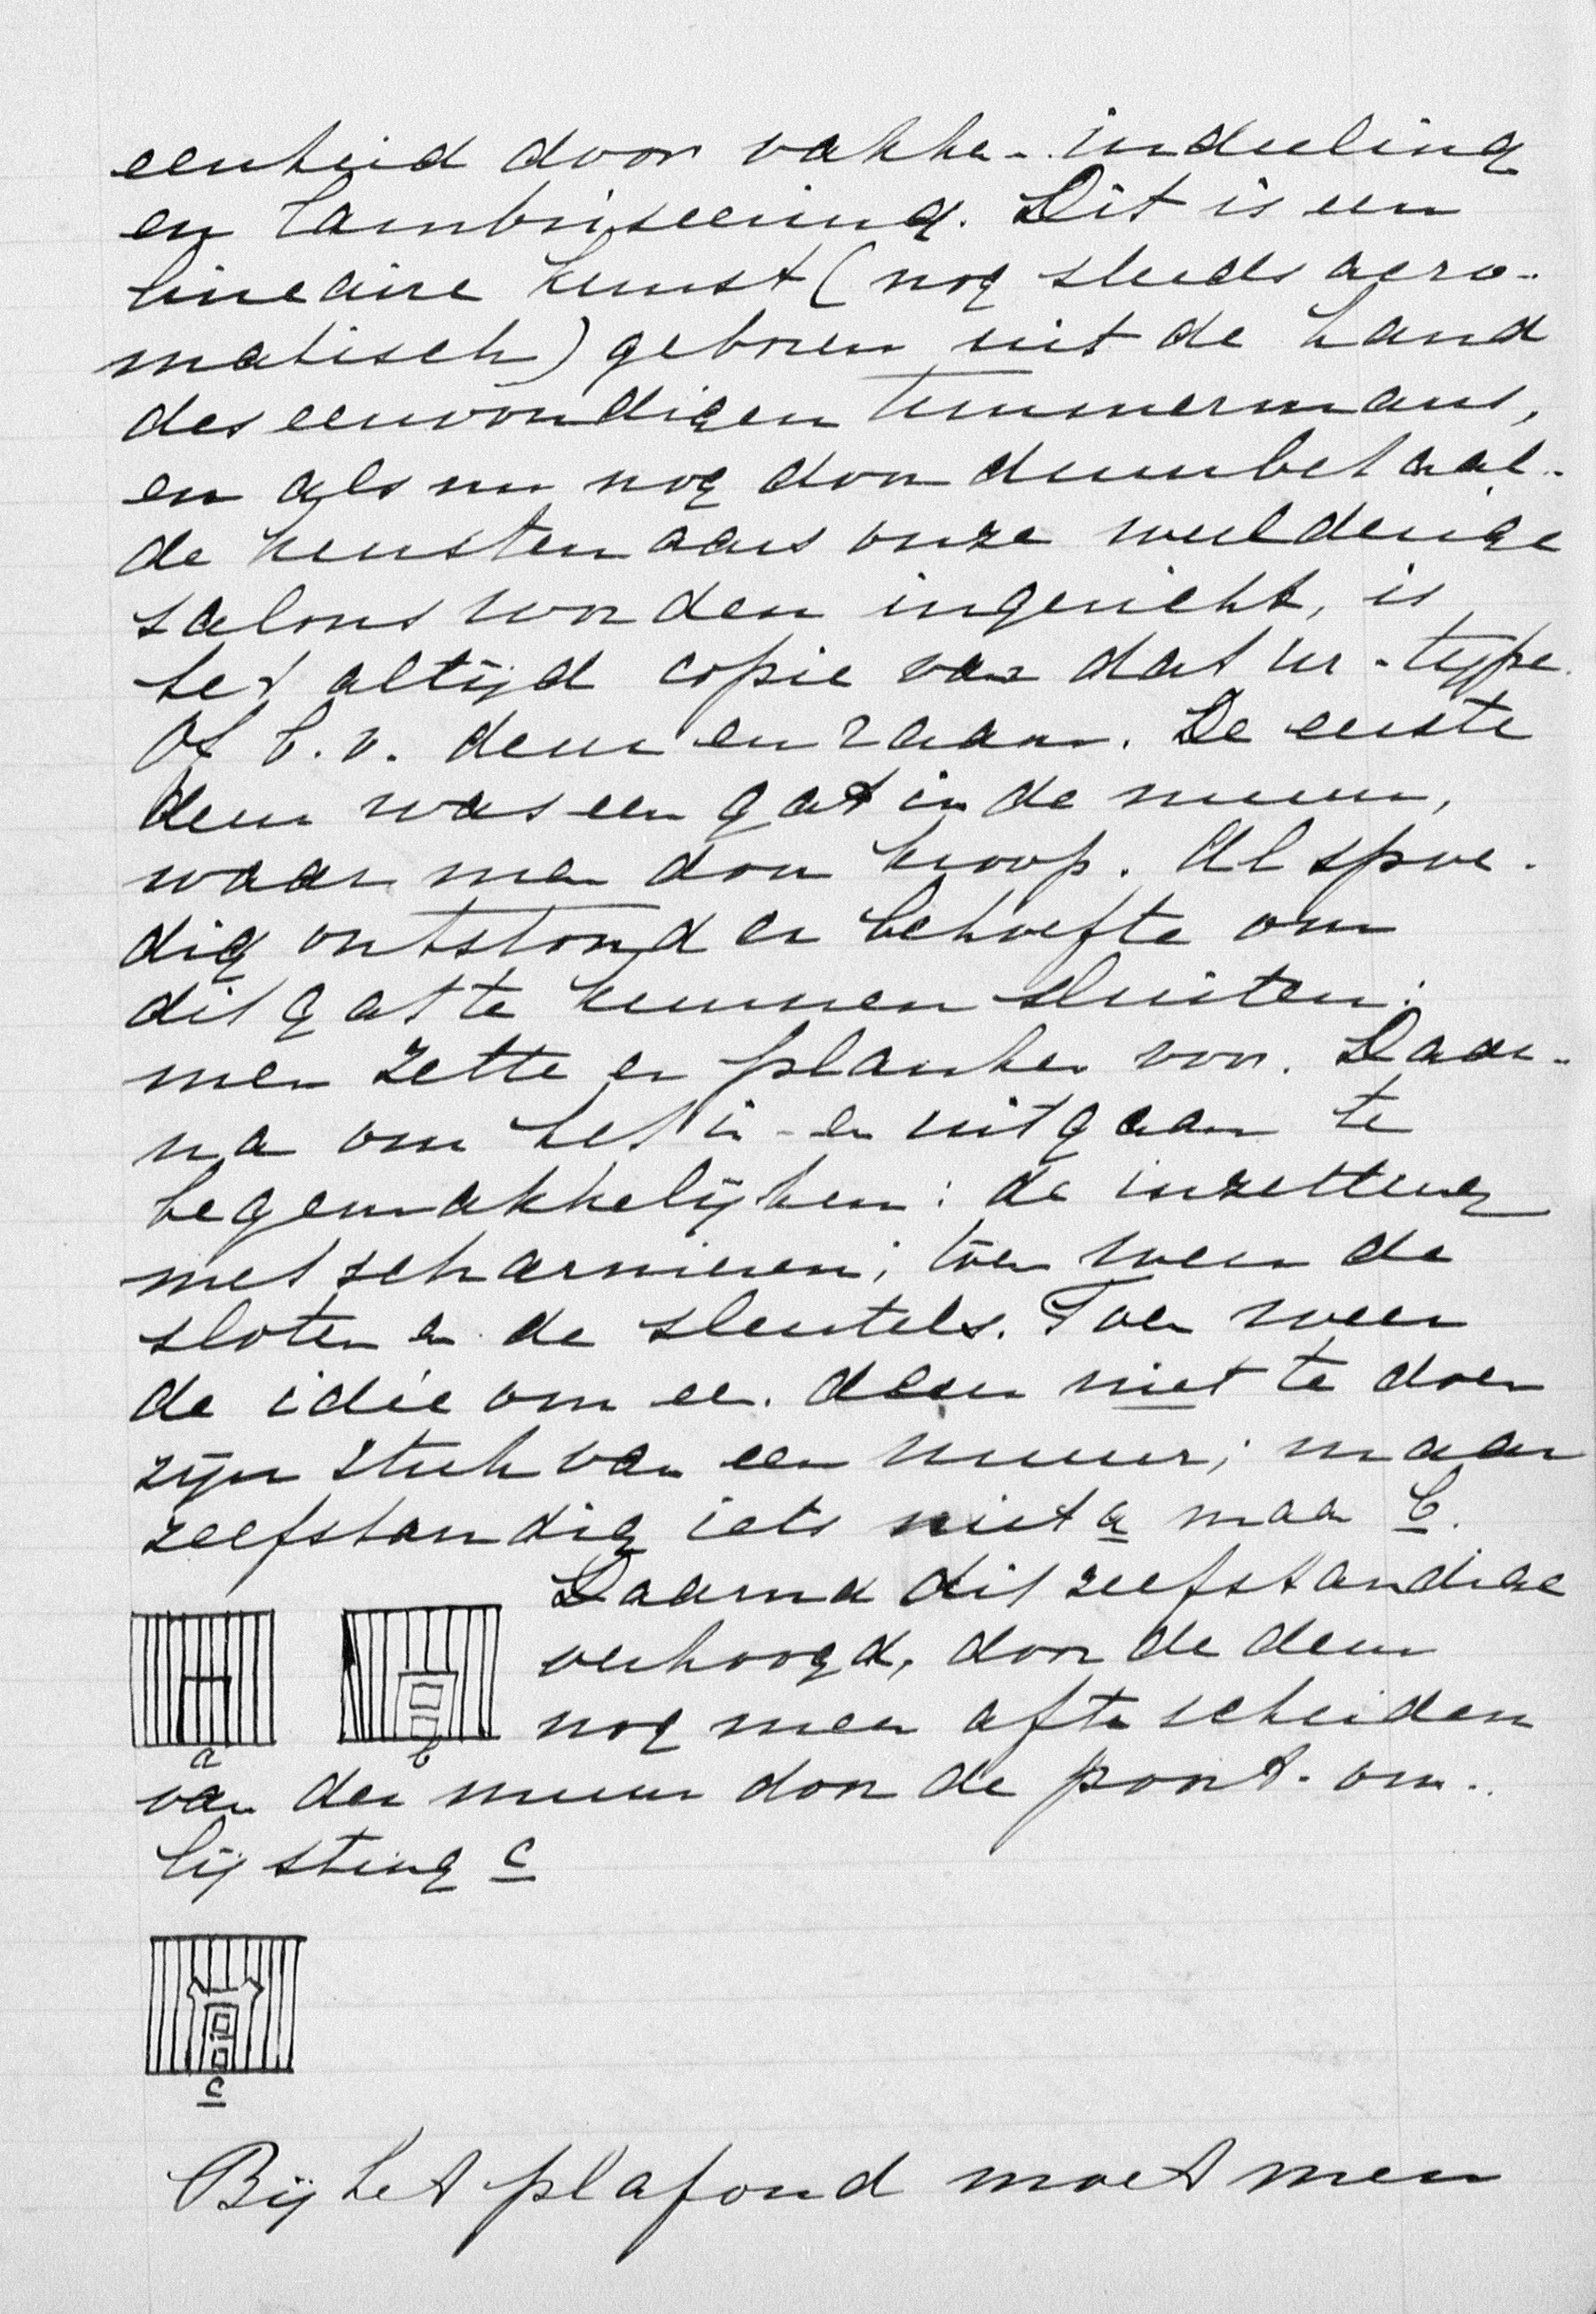 eenheid door vakke-indeeling
en lambriseering. Dit is een
lineaire kunst (nog steeds acro-
matisch) geboren uit de hand
des eenvoudigen timmermans,
en als nu nog door duurbetaal-
de kunstenaars onze weelderige
salons worden ingericht, is
het altijd copie van dat ur-type.
Of b.v. deur en raam. De eerste
deur was een gat in de muur,
waar men door kroop. Al spoe-
dig ontstond er behoefte om
dit gat te kunnen sluiten:
men zette er planken voor. Daar-
na om het in- en uitgaan te
begemakkelijken: de inzetting
met scharnieren; toen weer de
sloten en de sleutels. Toen weer
de idée om een deur niet te doen
zijn stuk van een muur; maar
zelfstandig iets niet a maar b.
Daarna dit zelfstandige
verhoogd, door de deur
nog meer af te scheiden
a b
van den muur door de poort-om-
lijsting c
c
Bij het plafond moet men